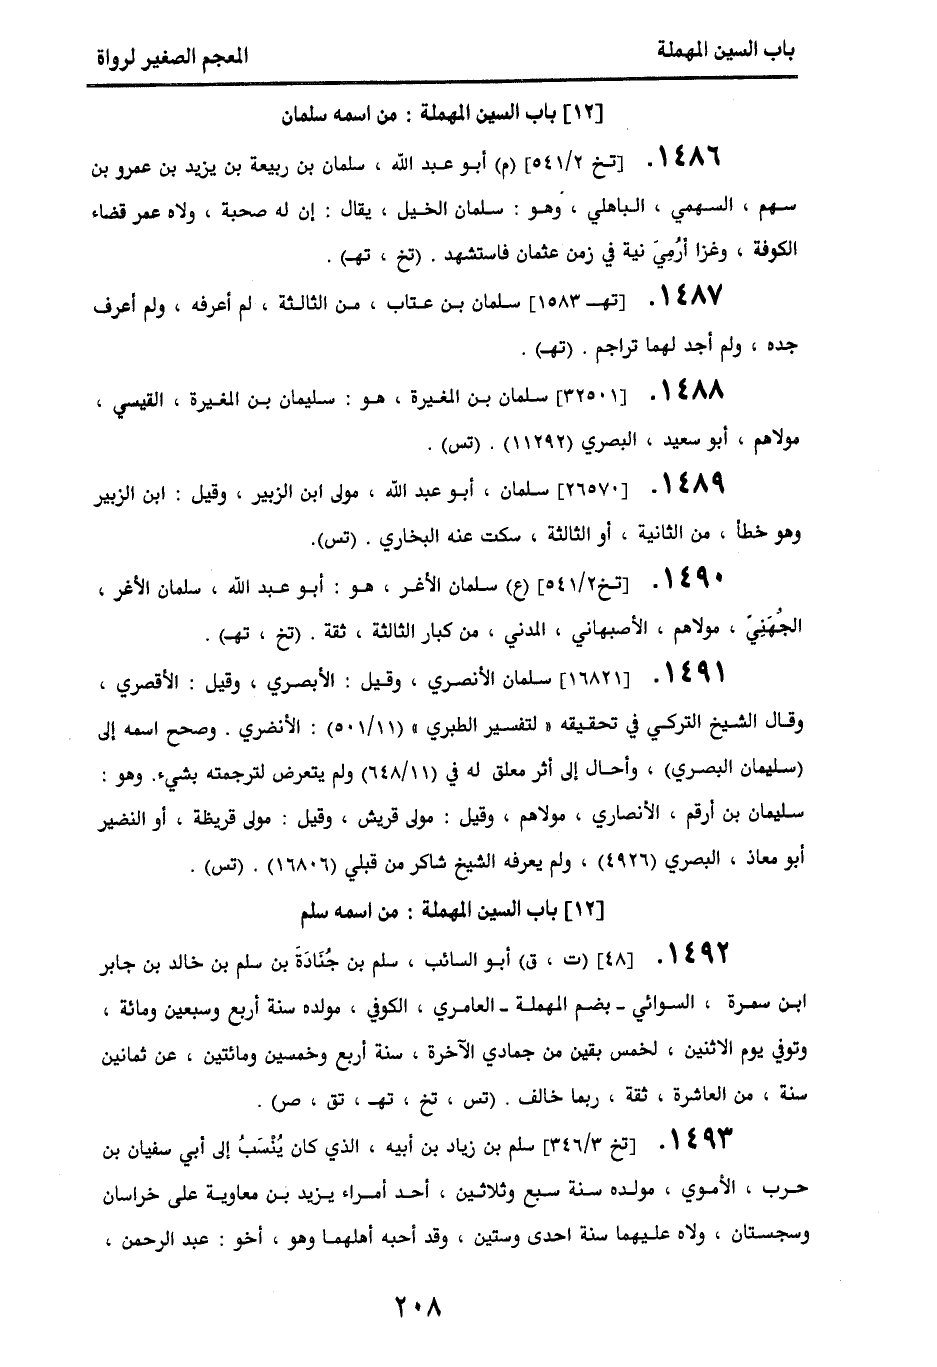 باب السين المهملة
المعجم الصغير لرواة
[١٢] باب السين المهملة : من اسمه سلمان
١٤٨٦. [تخ ٥٤١/٢] (م) أبو عبد الله ، سلمان بن ربيعة بن يزيد بن عمرو بن
سهم ، السهمي ، الباهلي ، وهو : سلمان الخيل ، يقال : إن له صحبة ، ولاه عمر قضاء
الكوفة ، وغزا أرْمِيَ نية في زمن عثمان فاستشهد . (تخ ، تهـ) .
١٤٨٧. [تهـ ١٥٨٣] سلمان بن عتاب ، من الثالثة ، لم أعرفه ، ولم أعرف
جده ، ولم أجد لهما تراجم . (تهـ) .
١٤٨٨. [٣٢٥٠١] سلمان بن المغيرة ، هو : سليمان بن المغيرة ، القيسي ،
مولاهم ، أبو سعيد ، البصري (١١٢٩٢) . (تس) .
١٤٨٩. [٢٦٥٧٠] سلمان ، أبو عبد الله ، مولى ابن الزبير ، وقيل : ابن الزبير
وهو خطأ ، من الثانية ، أو الثالثة ، سكت عنه البخاري . (تس).
١٤٩٠. [تخ٥٤١/٢] (ع) سلمان الأغر ، هو : أبو عبد الله ، سلمان الأغر ،
الجُهَنِيّ ، مولاهم ، الأصبهاني ، المدني ، من كبار الثالثة ، ثقة . (تخ ، تهـ) .
١٤٩١. [١٦٨٢١] سلمان الأنصري ، وقيل : الأبصري ، وقيل : الأقصري ،
وقال الشيخ التركي في تحقيقه « لتفسير الطبري » (٥٠١/١١) : الأنضري . وصحح اسمه إلى
(سليمان البصري) ، وأحال إلى أثر معلق له في (٦٤٨/١١) ولم يتعرض لترجمته بشيء. وهو :
سليمان بن أرقم ، الأنصاري ، مولاهم ، وقيل : مولى قريش ، وقيل : مولى قريظة ، أو النضير
أبو معاذ ، البصري (٤٩٢٦) ، ولم يعرفه الشيخ شاكر من قبلي (١٦٨٠٦) . (تس) .
[١٢] باب السين المهملة : من اسمه سلم
١٤٩٢. [٤٨] (ت ، ق) أبو السائب ، سلم بن جُنَادَةَ بن سلم بن خالد بن جابر
ابن سمرة ، السوائي ـ بضم المهملة ـ العامري ، الكوفي ، مولده سنة أربع وسبعين ومائة ،
وتوفي يوم الاثنين ، لخمس بقين من جمادي الآخرة ، سنة أربع وخمسين ومائتين ، عن ثمانين
سنة ، من العاشرة ، ثقة ، ربما خالف . (تس ، تخ ، تهـ ، تق ، صر) .
١٤٩٣. [تخ ٣٤٦/٣] سلم بن زياد بن أبيه ، الذي كان يُنْسَبُ إلى أبي سفيان بن
حرب ، الأموي ، مولده سنة سبع وثلاثين ، أحد أمراء يزيد بن معاوية على خراسان
وسجستان ، ولاه عليهما سنة احدى وستين ، وقد أحبه أهلهما وهو ، أخو : عبد الرحمن ،
٢٠٨